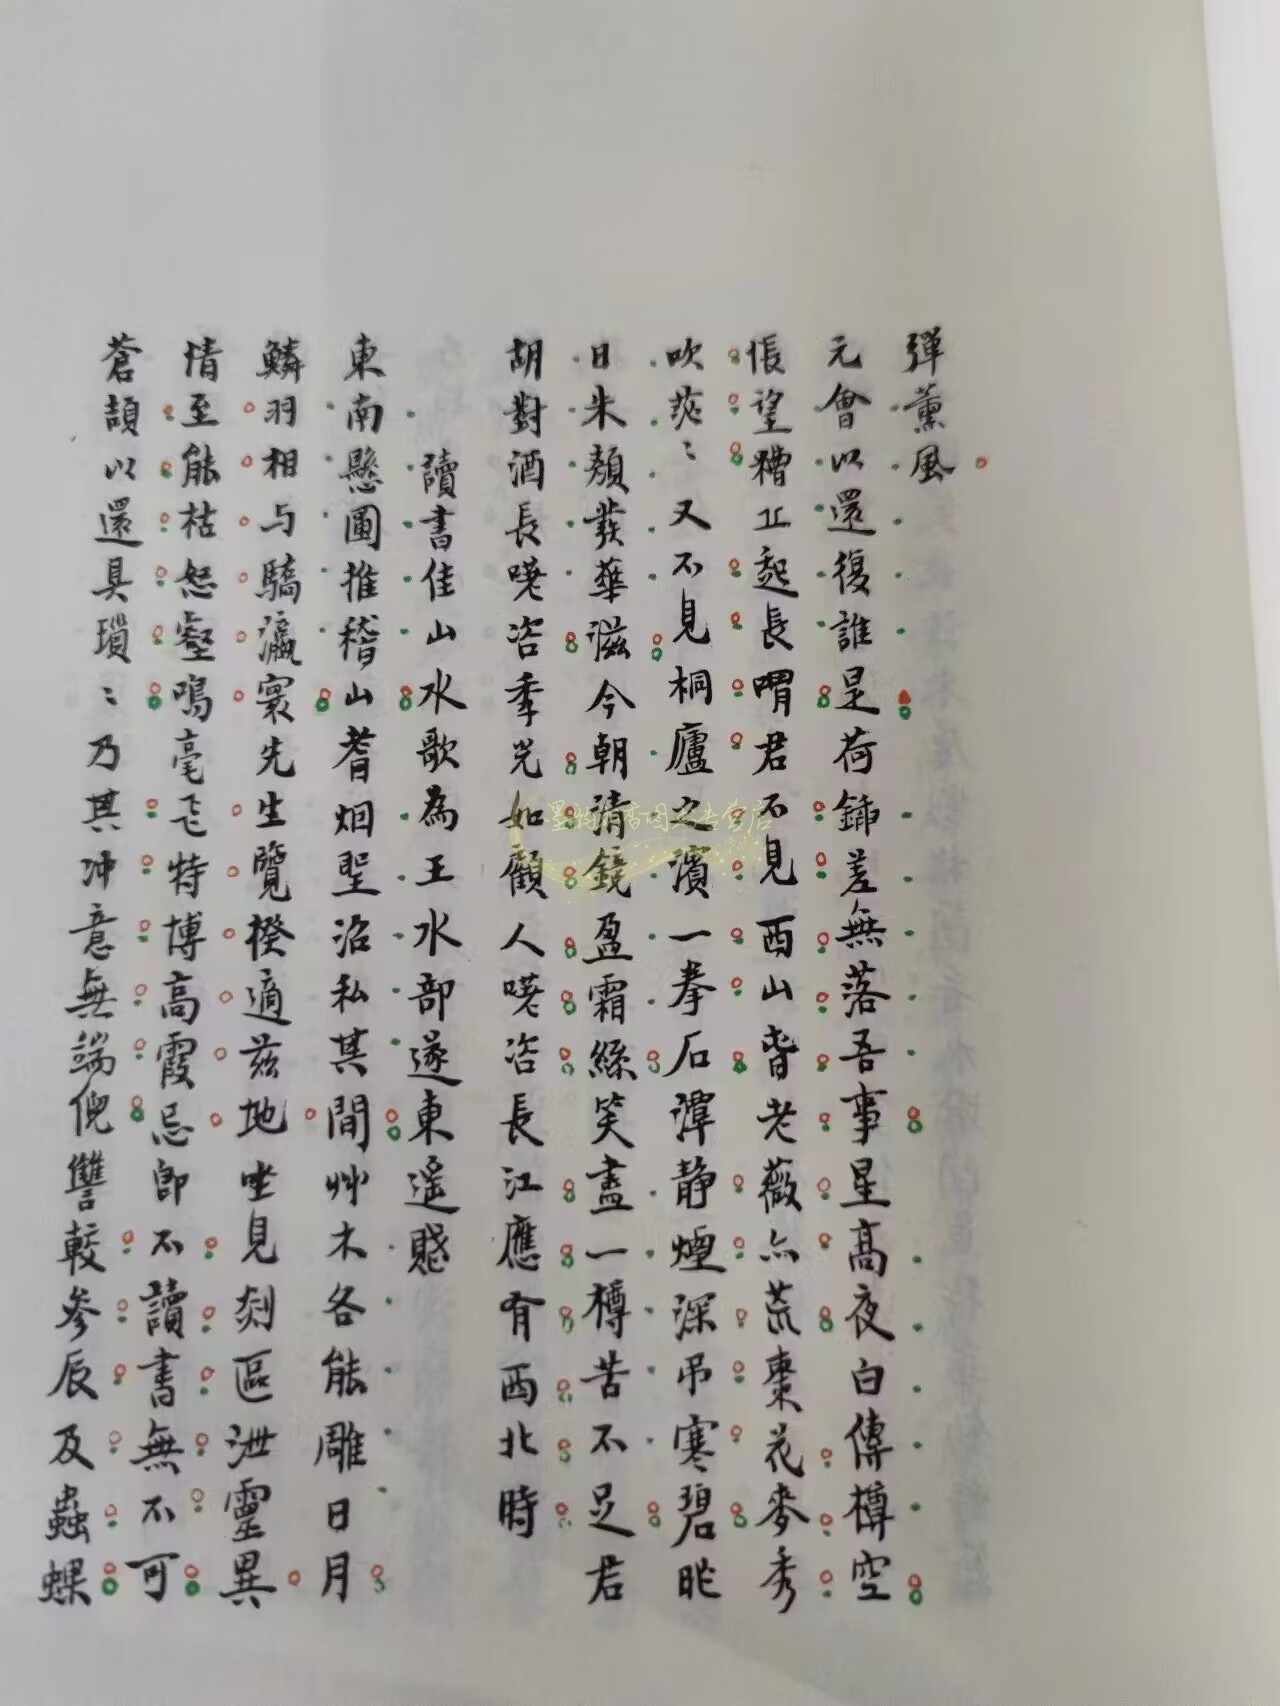 彈薰風
元會以還復誰是荷鍤差無落吾事星高夜白傳樽空
悵望糟丘起長喟君不見西山昏老薇亦荒棗花麥秀
吹茫〻又不見桐廬之濱一拳石潭靜煙深弔寒碧昨
日朱顏發華滋今朝清鏡盈霜絲笑盡一樽苦不足君
胡對酒長嘆咨季光如顧人嘆咨長江應有西北時
讀書佳山水歌為王水部遂東遙賤
東南懸圃推稽山耆烟聖沼私其間艸木各能雕日月
鱗羽相与驕瀛寰先生覽揆適茲地坐見剡區泄靈異
情至能枯怒壑鳴毫飞特博高霞忌郎不讀書無不可
蒼頡以還具瑣〻乃其冲意無端倪讐較參辰及蟲蜾